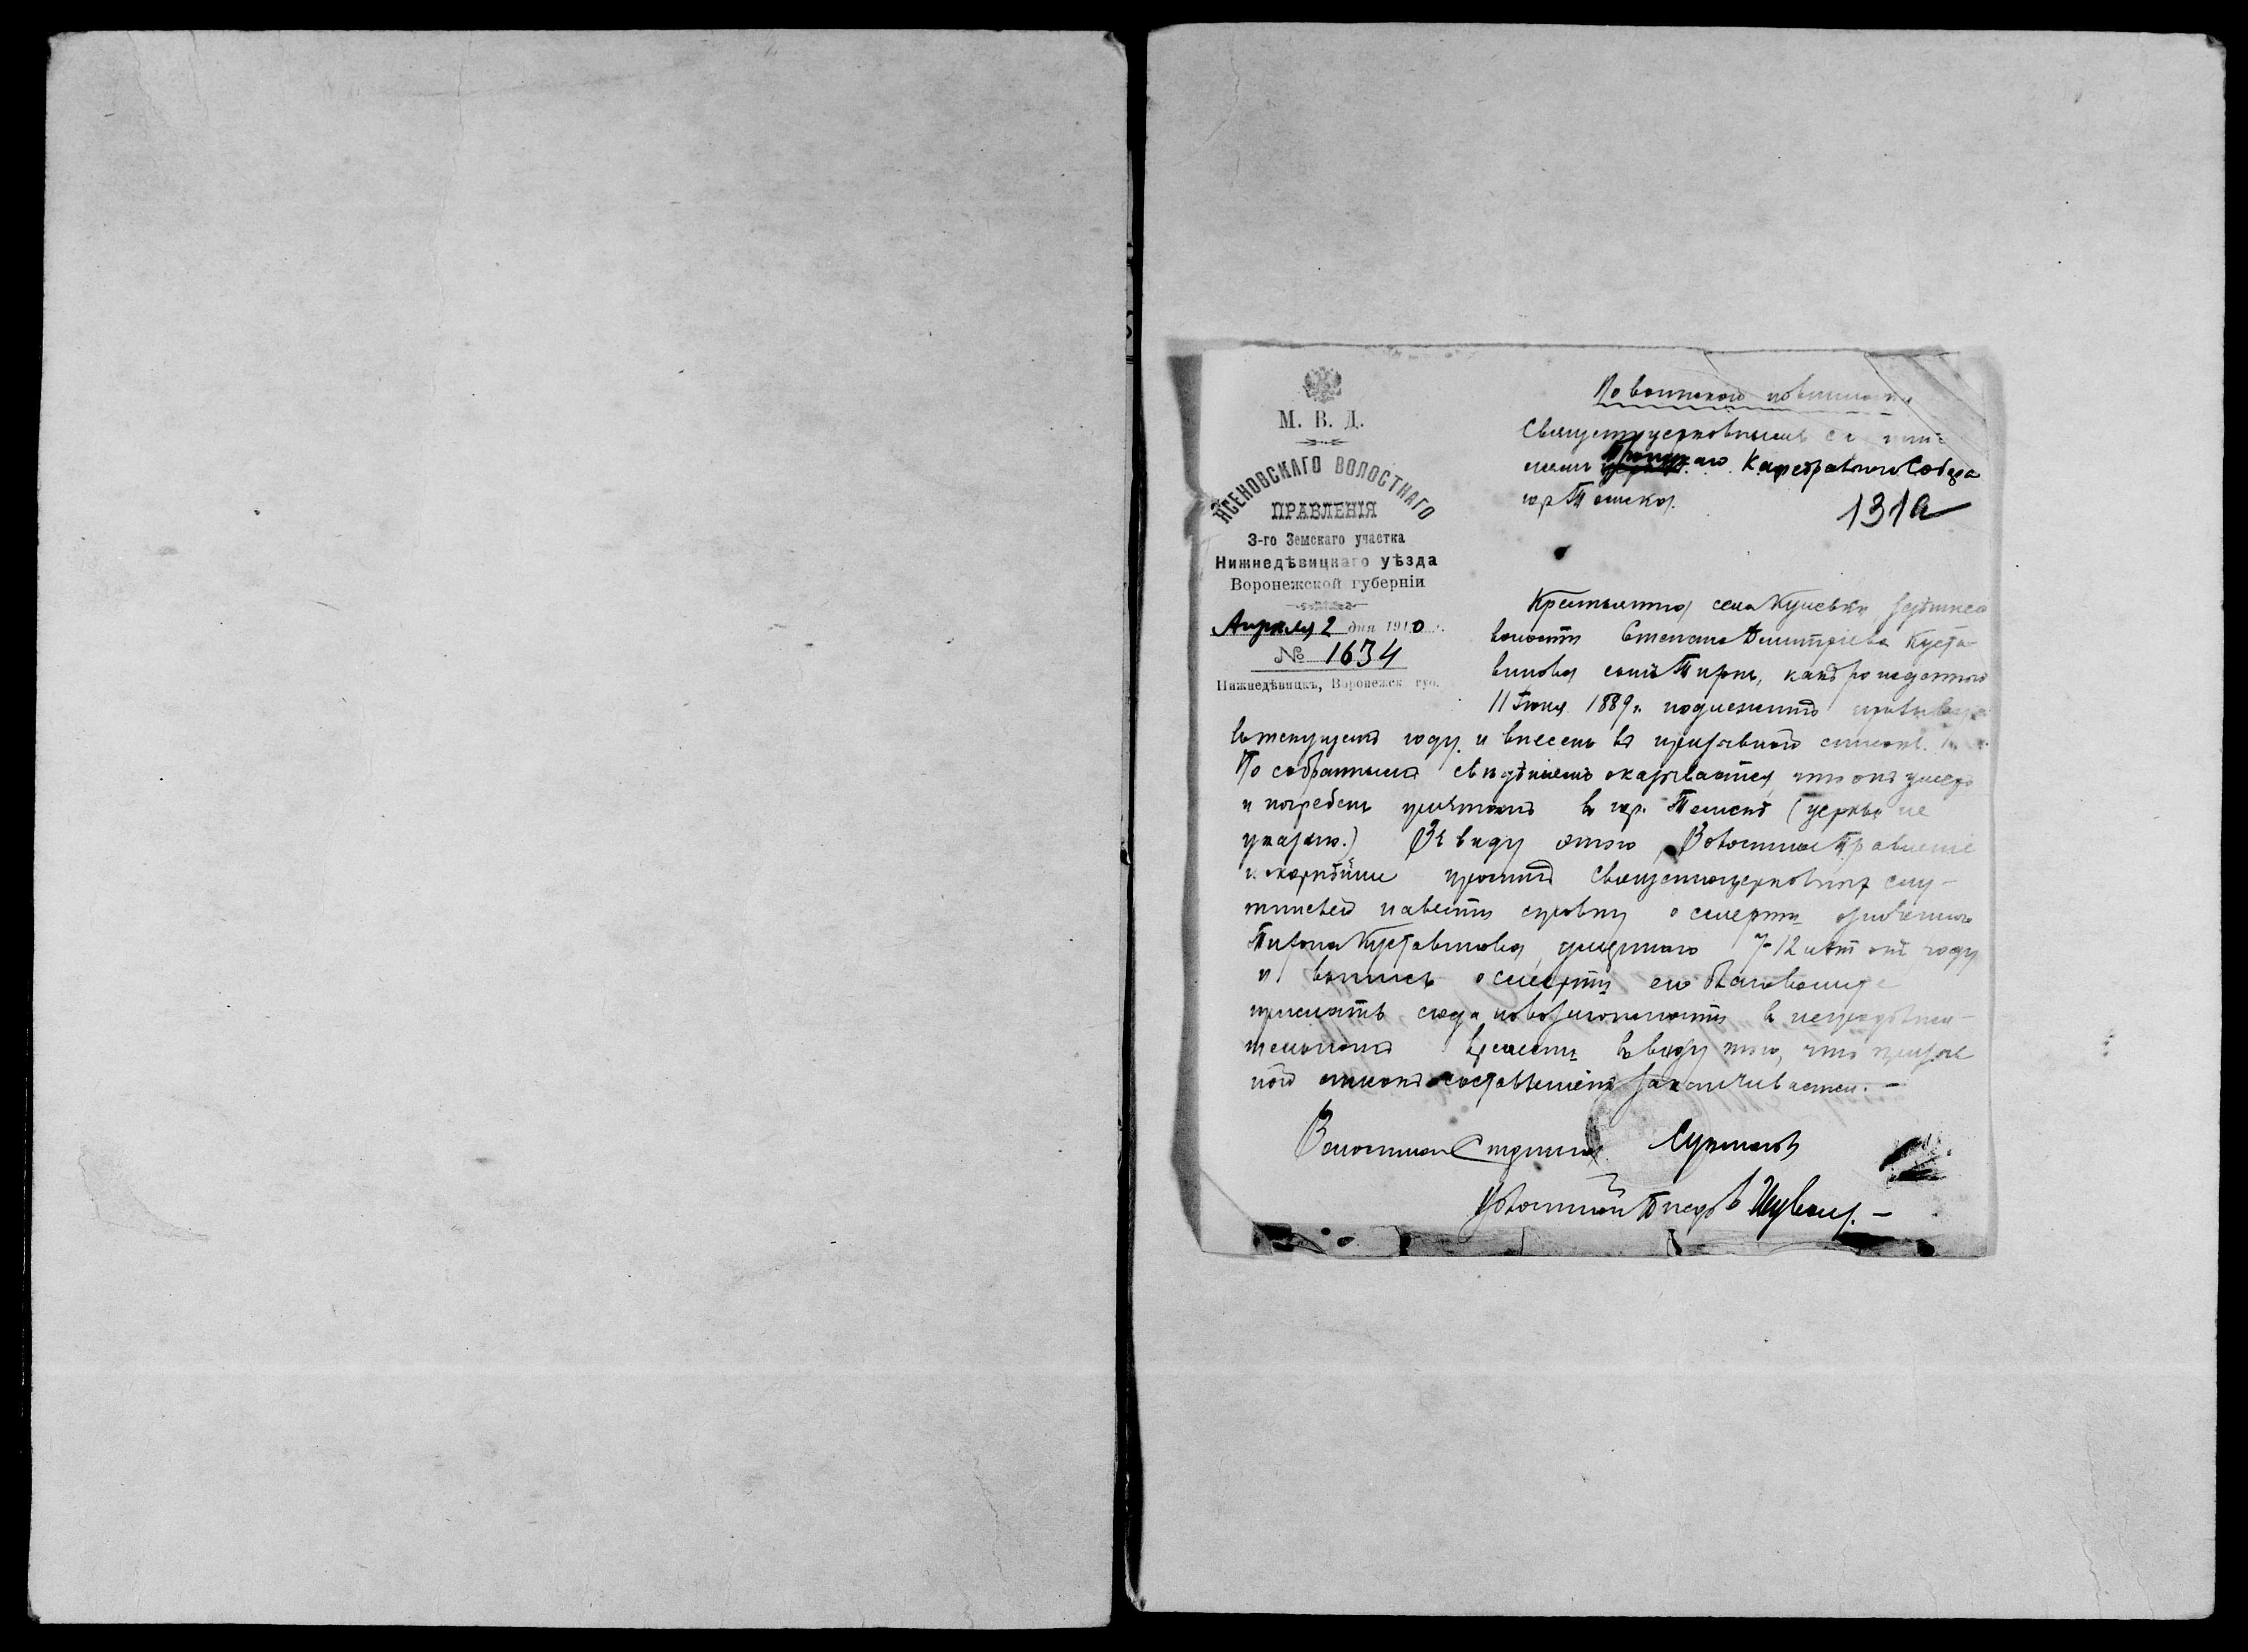 М. В. Д.
ЯСЕНОВСКАГО ВОЛОСТНАГО
ПРАВЛЕНІЯ
3-го Земскаго участка
Нижнедѣвицкаго уѣзда
Воронежской губерніи
Апрѣля 2 дня 1910 г.
№ 1634
Нижнедѣвицкъ, Воронежск. губ.
По воинской повинности
Священноцерковнымъ
Троицкаго Кафедральнаго Собора
гор Томска.
131а
Крестьянина села Кулевки, здѣшней
волости Степана Димитріева Куста-
винова сынъ какъ рожденный
11 Іюня 1889 г. подлежитъ призыву
въ текущемъ году и внесенъ въ призывной списокъ.
По собраннымъ свѣдѣніямъ оказывается, что онъ умеръ
и погребенъ причтомъ въ гор. Томскѣ (церковь не
указано.) Въ виду этого Волостное Правленіе
покорнѣйше проситъ священноцерковнослу-
жителей навести справку о смерти означеннаго
Куставинова, умершаго 7-12 лѣтъ отъ роду
и выпись о смерти его благоволите
прислать сюда въ непродолжи-
тельномъ времени въ виду того, что призыв-
ной списокъ составленіемъ заканчивается. -
Волостной Старшина
Волостной Писарь